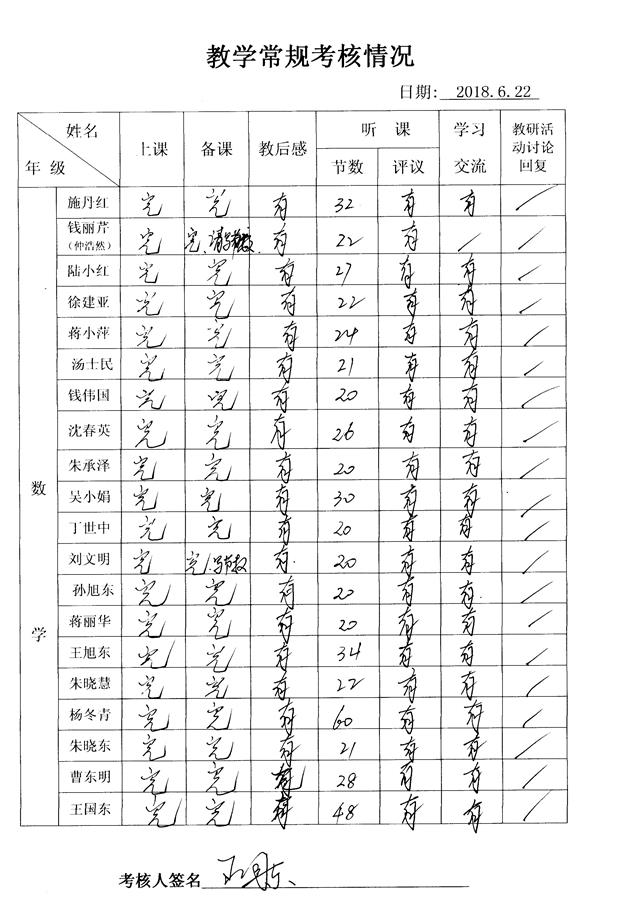 教学常规考核情况
日期: 2018.6.22
姓名 年级 上课 备课 教后感 听课 节数 评议 学习交流 教研活动讨论回复
数学
施丹红 完 完 有 32 有 有 /
钱丽芹(仲浩然) 完 完, 有 22 有 / /
陆小红 完 完 有 27 有 有 /
徐建亚 完 完 有 22 有 有 /
蒋小萍 完 完 有 24 有 有 /
汤士民 完 完 有 21 有 有 /
钱伟国 完 完 有 20 有 有 /
沈春英 完 完 有 26 有 有 /
朱承泽 完 完 有 20 有 有 /
吴小娟 完 完 有 30 有 有 /
丁世中 完 完 有 20 有 有 /
刘文明 完 完, 有 20 有 有 /
孙旭东 完 完 有 20 有 有 /
蒋丽华 完 完 有 20 有 有 /
王旭东 完 完 有 34 有 有 /
朱晓慧 完 完 有 22 有 有 /
杨冬青 完 完 有 60 有 有 /
朱晓东 完 完 有 21 有 有 /
曹东明 完 完 有 28 有 有 /
王国东 完 完 有 48 有 有 /
考核人签名